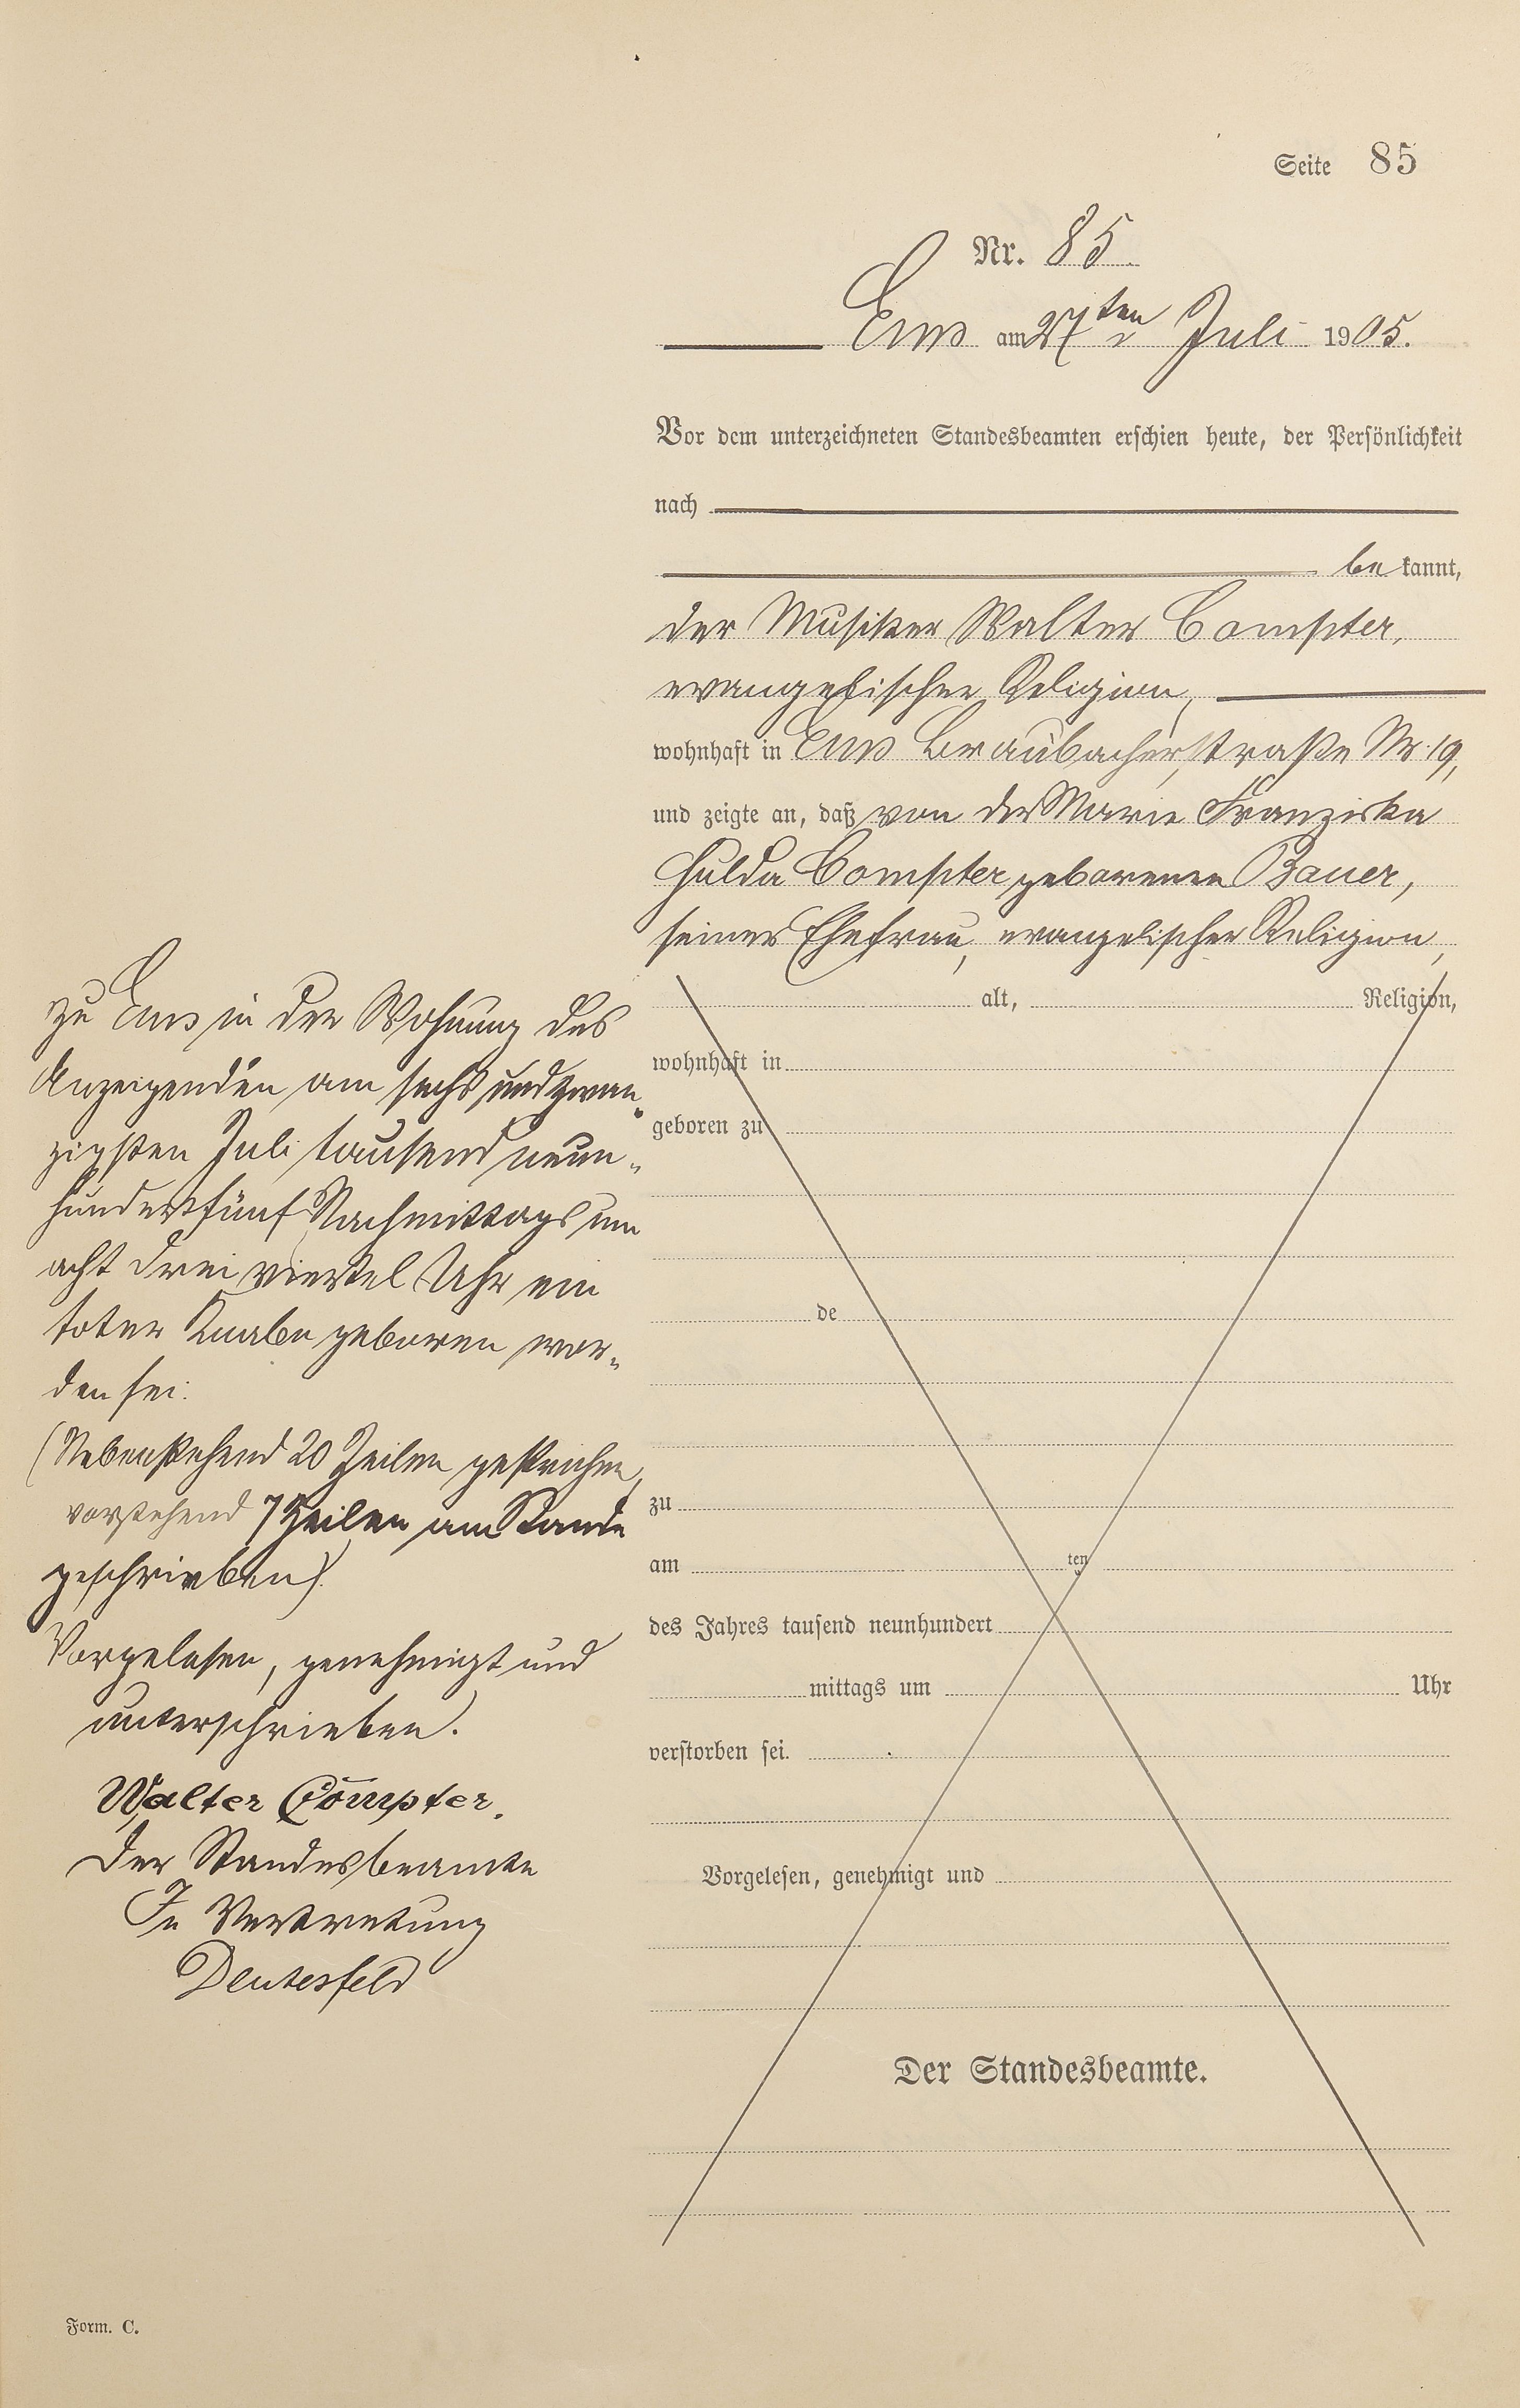 Seite 85
Nr. 85.
Ems am 27ten Juli 1905.
Vor dem unterzeichneten Standesbeamten erschien heute, der Persönlichkeit
nach
be kannt,
der Musiker Walter Compter,
evangelischer Religion,
wohnhaft in Ems Braubacherstraße Nr. 19,
und zeigte an, daß von der Marie Franziska
Hulda Compter geborenen Bauer,
seiner Ehefrau, evangelischer Religion,
alt, Religion,
wohnhaft in
geboren zu
de
zu
am ten
des Jahres tausend neunhundert
mittags um Uhr
verstorben sei.
Vorgelesen, genehmigt und
Der Standesbeamte.
zu Ems in der Wohnung des
Anzeigenden am sechs und zwan„
zigsten Juli tausend neun„
hundert fünf Nachmittags um
acht drei viertel Uhr ein
toter Knabe geboren wor„
den sei.
(Nebenstehend 20 Zeilen gestrichen,
vorstehend 7 Zeilen am Rande
geschrieben).
Vorgelesen, genehmigt und
unterschrieben.
Walter Compter.
Der Standesbeamte
In Vertretung
Deutesfeld
Form. C.